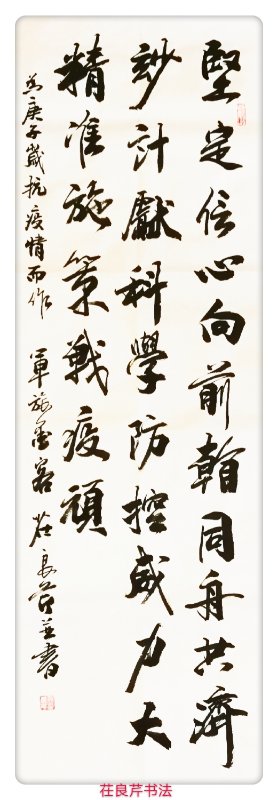 堅定信心向前幹同舟共濟
妙計獻科學防控威力大
精准施策戰疫頑
为庚子歲抗疫情而作 軍旅墨客 在良芹並書
在良芹书法